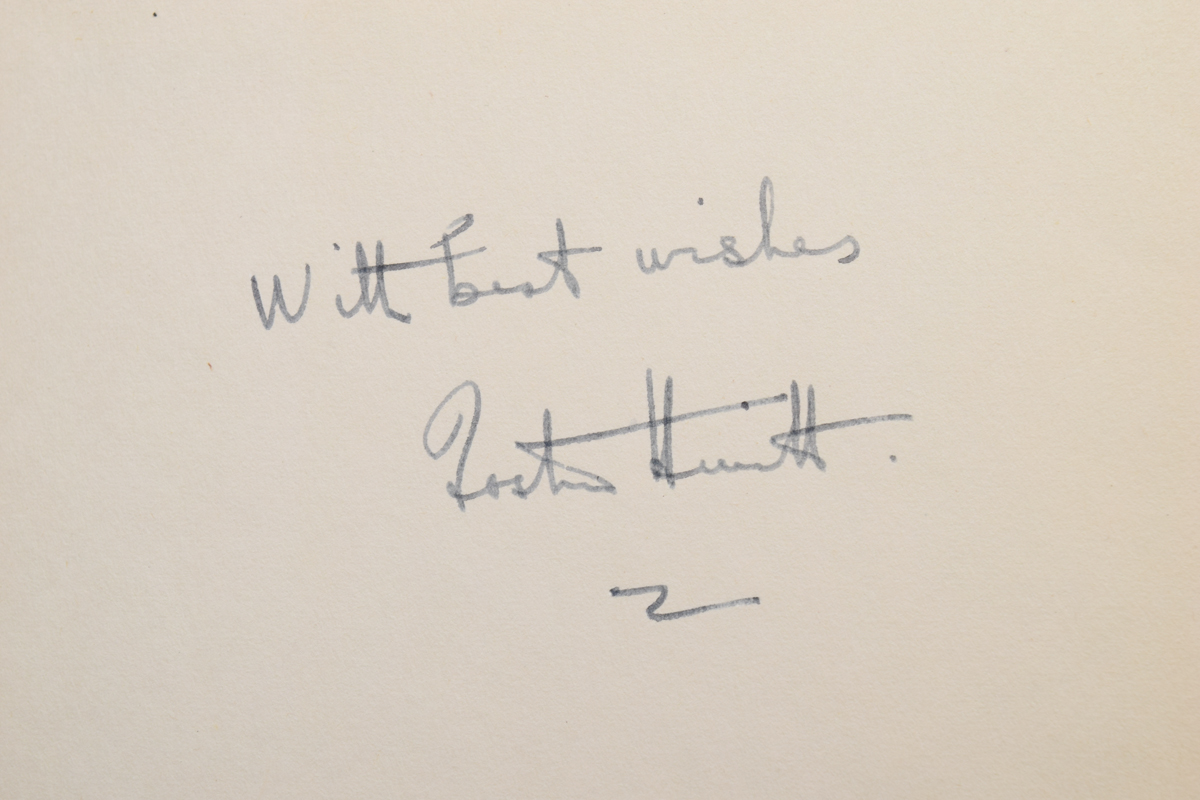 With best wishes
Foster Hewitt.